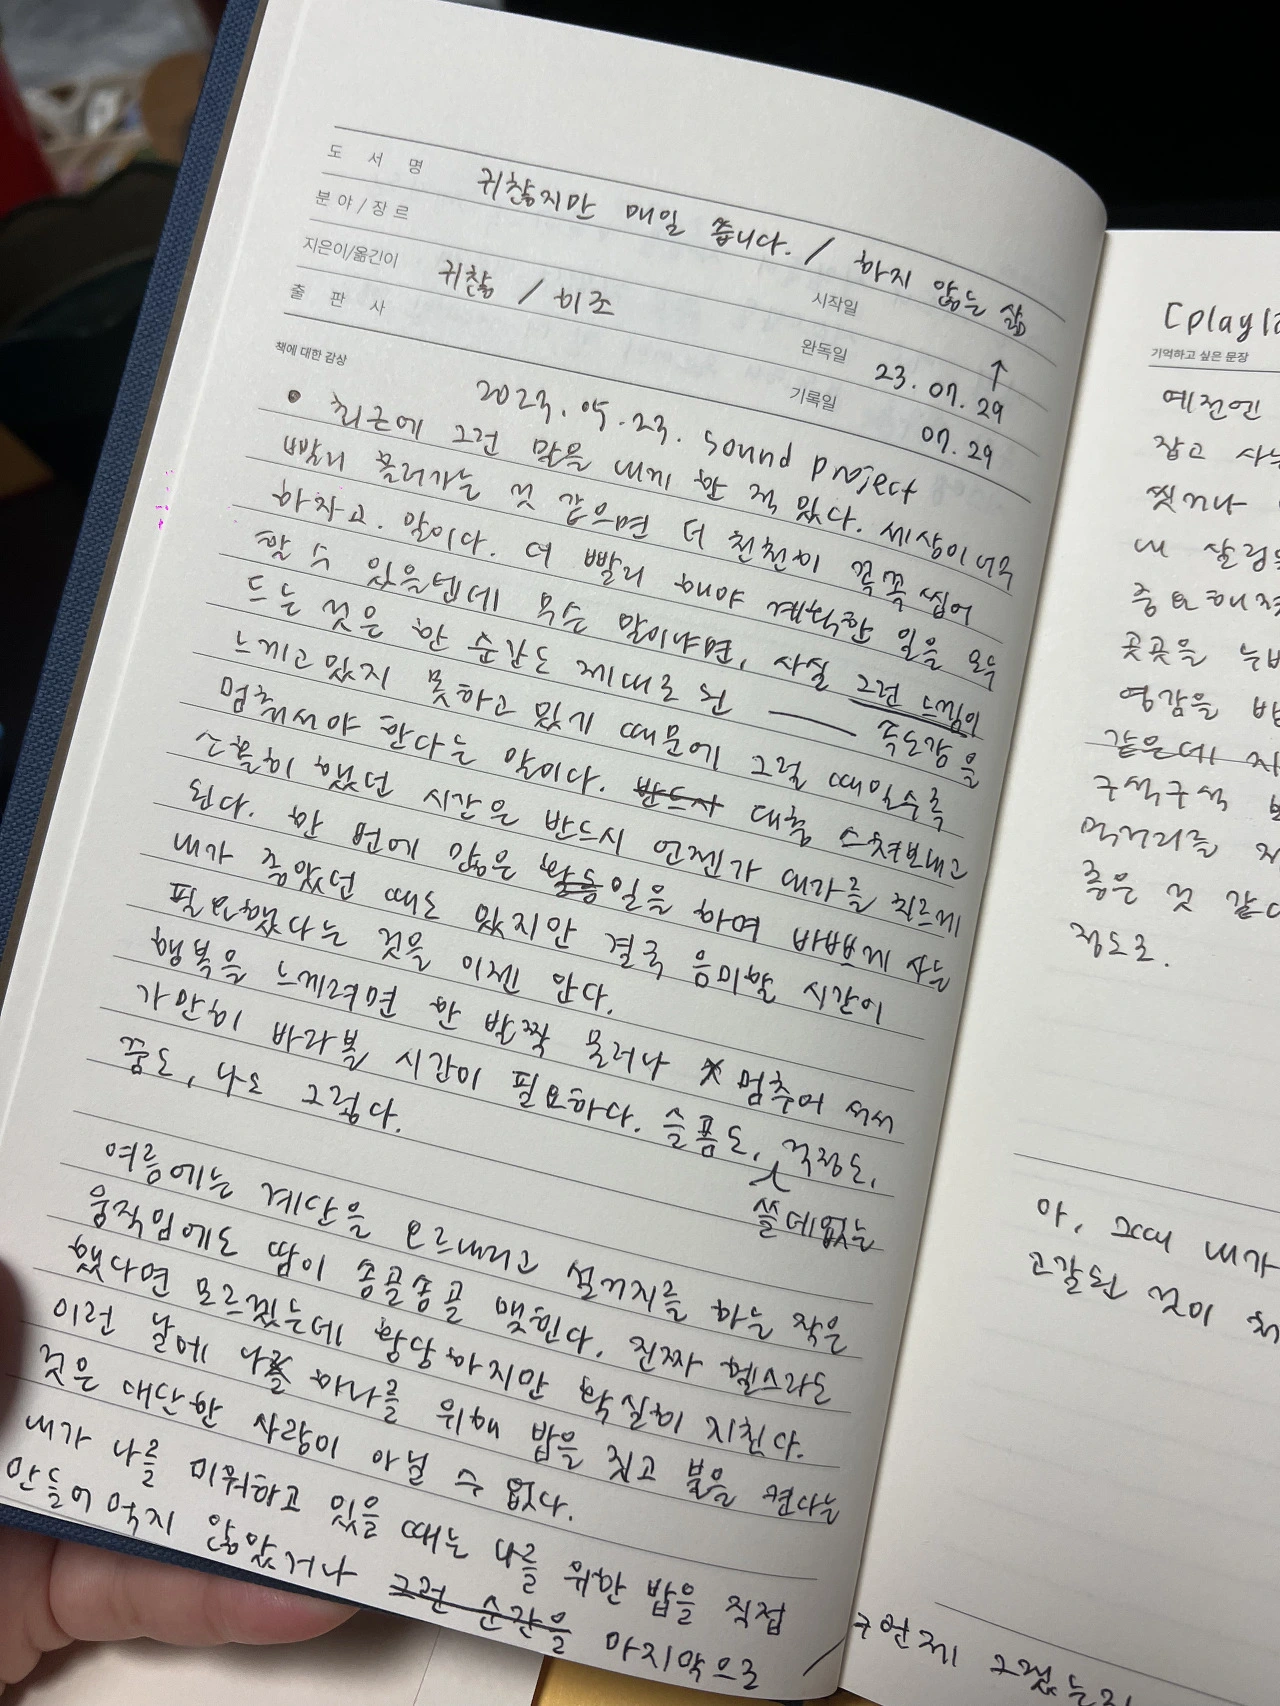 도 서 명 귀찮지만 매일 씁니다. / 하지 않는 삶
분야/장르 시작일 ↑
지은이/옮긴이 귀찮 / 히조 완독일 23. 07. 29
출 판 사 기록일 07. 29
책에 대한 감상
2023. 05. 23. sound project
• 최근에 그런 말을 내게 한 적 있다. 세상이 너무
빨리 흘러가는 것 같으면 더 천천히 꼭꼭 씹어
하자고. 말이다. 더 빨리 해야 계획한 일을 모두
할 수 있을텐데 무슨 말이냐면, 사실 그런 느낌이
드는 것은 한 순간도 제대로 된 속도감을
느끼고 있지 못하고 있기 때문에 그럴 때일수록
멈춰서야 한다는 말이다. 반드시 대충 스쳐보내고
소홀히 했던 시간은 반드시 언젠가 대가를 치르게
된다. 한 번에 많은 활동일을 하며 바쁘게 사는
내가 좋았던 때도 있지만 결국 음미할 시간이
필요했다는 것을 이젠 안다.
행복을 느끼려면 한 발짝 물러나 멈추어 서서
가만히 바라볼 시간이 필요하다. 슬픔도, 걱정도,
쓸데없는
꿈도, 나도 그렇다.
여름에는 계단을 오르내리고 설거지를 하는 작은
움직임에도 땀이 송골송골 맺힌다. 진짜 헬스라도
했다면 모르겠는데 황당하지만 확실히 지친다.
이런 날에 나를 하나를 위해 밥을 짓고 불을 켠다는
것은 대단한 사랑이 아닐 수 없다.
내가 나를 미워하고 있을 때는 나를 위한 밥을 직접
만들어 먹지 않았거나 그런 순간을 마지막으로
[playli
기억하고 싶은 문장
예전엔
잡고 사는
씻거나
내 살림
중요해졌
곳곳을 누비
영감을 받
같은데 지
구석구석
먹거리를
좋은 것 같다
정도로.
아, 그때 내가
고갈된 것이
언제 그랬는지